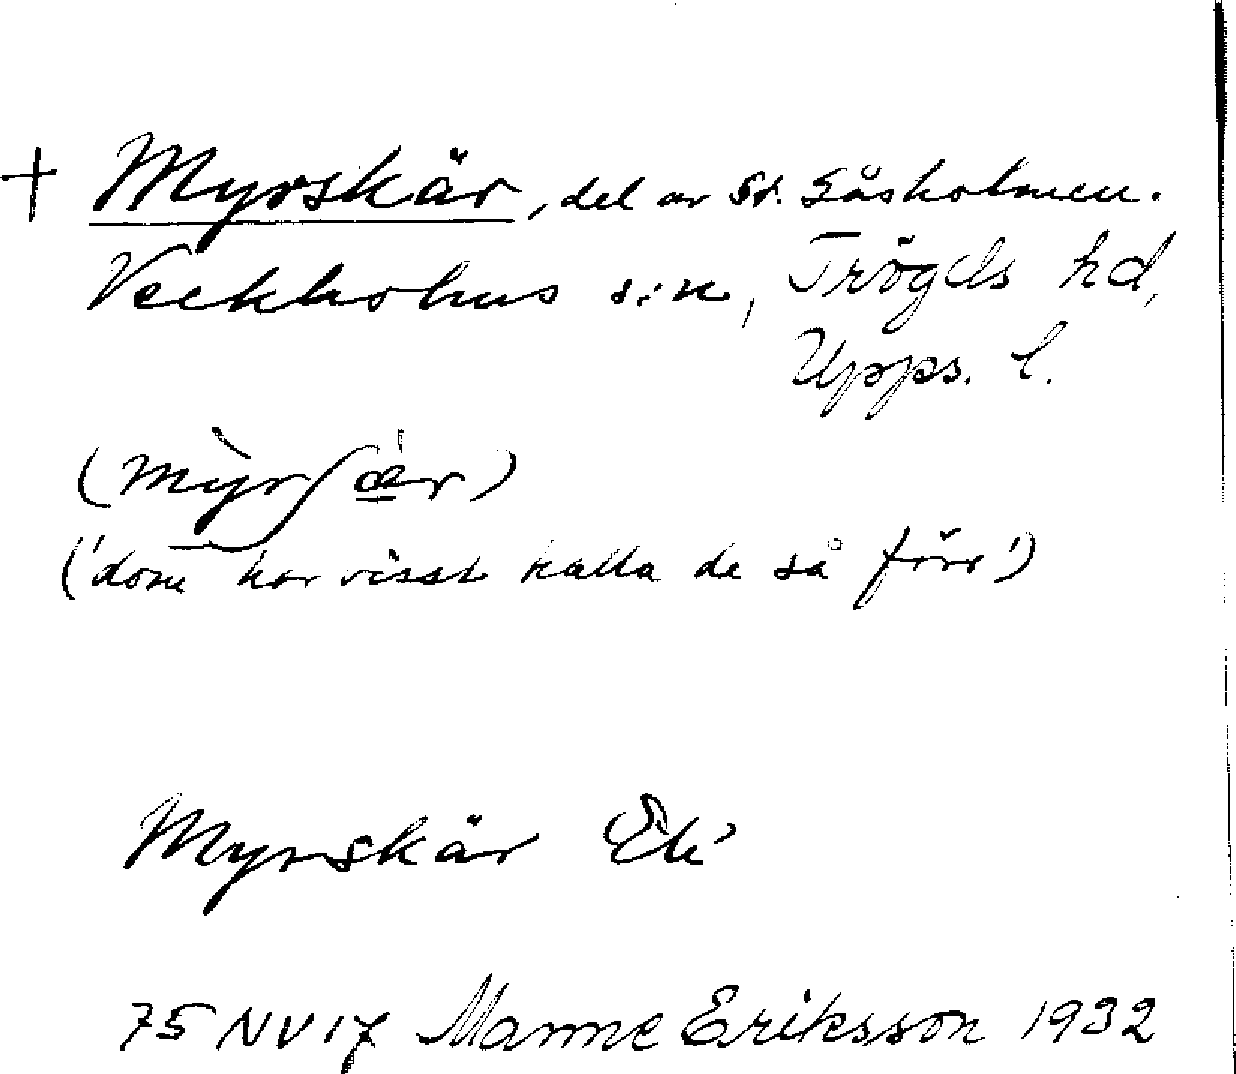 + Myrskär, del av St. Gåsholmen.
Veckholms s:n, Trögds hd,
Upps. l.
(mỳrʃæ̀r)
('dom har visst kalla de så förr')
Myrskär Ek
75 NV 17 Manne Eriksson 1932